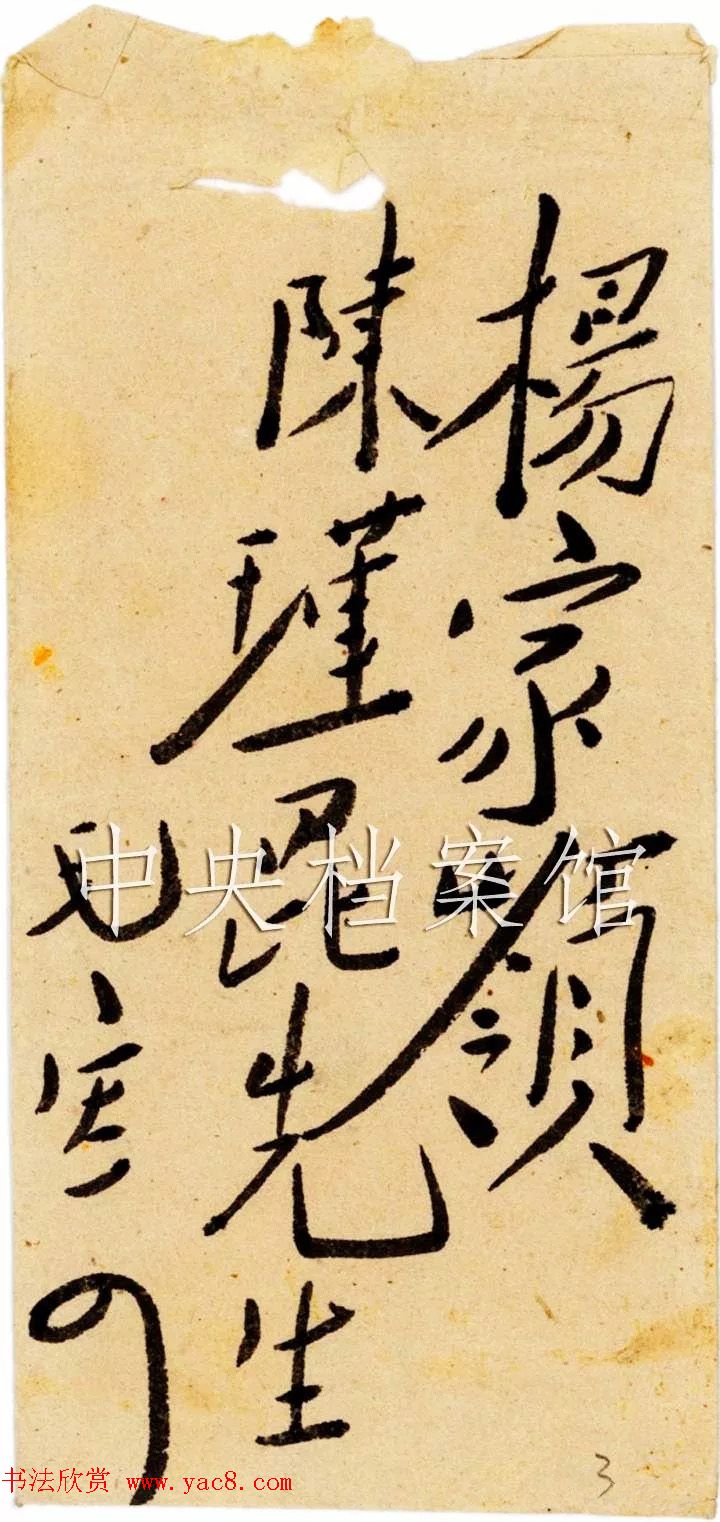 楊家領
陳瑾昆先生
毛
中央档案馆
书法欣赏 www.yac8.com
3